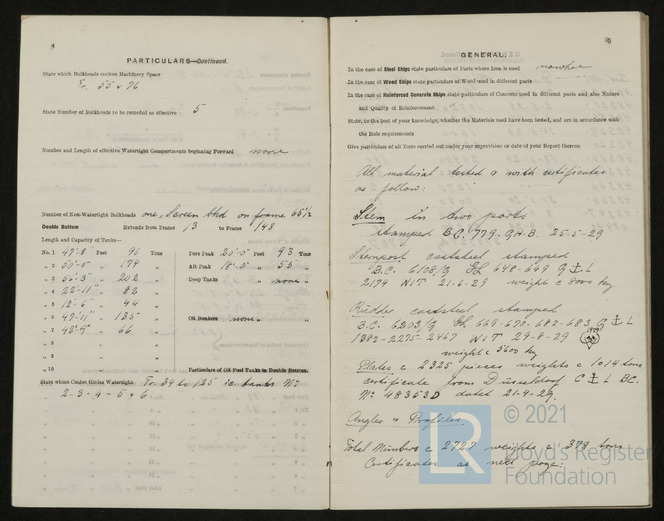 4
PARTICULARS—Continued.
State which Bulkheads enclose Machinery Space
Fr. 55 & 96
State Number of Bulkheads to be recorded as effective 5
Number and Length of effective Watertight Compartments beginning Forward none
Number of Non-Watertight Bulkheads one, Screen bhd on frame 65½
Double Bottom Extends from Frame 13 to Frame 148
Length and Capacity of Tanks—
No. 1 47'-8" Feet 96 Tons Fore Peak 20'-0" Feet 93 Tons
„ 2 50'-0" „ 179 „ Aft Peak 18'-0" „ 55 „
„ 3 „ 202 „ Deep Tanks „ none „
„ 4 22'-11" „ 82 „
„ 5 12'-6" „ 44 „
„ 6 47'-11" „ 135 „ Oil Bunkers none „ „
„ 7 „ 66 „
„ 8 „ „
„ 9 „ „
„ 10 „ „ Particulars of Oil Fuel Tanks in Double Bottom.
State where Centre Girder Watertight Fr 34 to 125 ie tanks No
2-3-4-5 & 6
5
GENERAL.
In the case of Steel Ships state particulars of Parts where Iron is used nowhere
In the case of Wood Ships state particulars of Wood used in different parts
In the case of Reinforced Concrete Ships state particulars of Concrete used in different parts and also Nature
and Quality of Reinforcement
State, to the best of your knowledge, whether the Materials used have been tested, and are in accordance with
the Rule requirements
Give particulars of all Tests carried out under your supervision or date of your Report thereon
All material tested & with certificates
as follow:
Stem in two parts
stamped B.C. 779. G.H.B. 25-5-29
Sternpost caststeel stamped
B.C. 6108/G 648-649 G L
2194 WIT 21-6-29 weight 8000 kg
Rudder caststeel stamped
B.C. 6203/G 669-670-682-683 G L
1882-2275-2467 WIT 29-8-29
weight 3600 kg
Plates 2325 pieces weights 1014 tons
certificate from Düsseldorf C L BC.
No 48353D dated 21-9-29.
Angles & Profiles.
Total Numbers 2727 weights 378 tons
Certificates as next page:
© 2021
LR
Lloyd's Register
Foundation